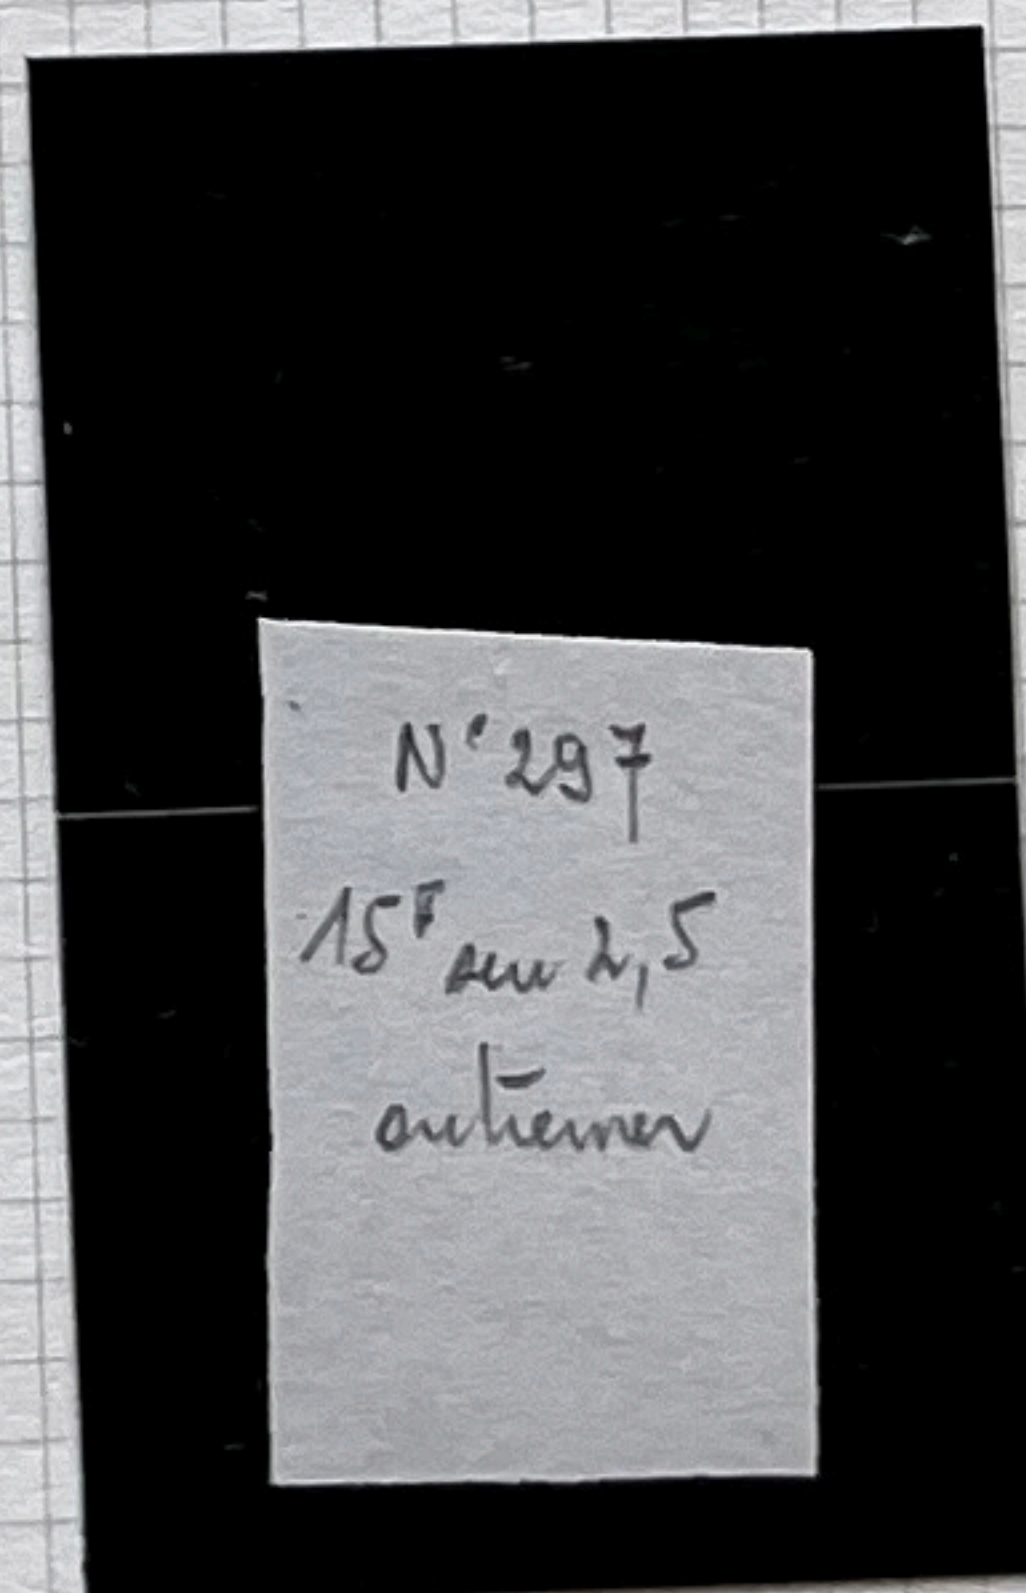 N° 297
15F sur 2,5
outremer